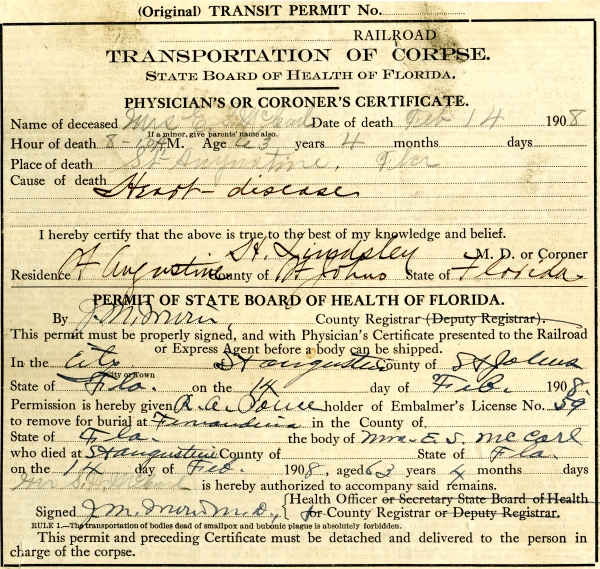 (Original) TRANSIT PERMIT No.
RAILROAD
TRANSPORTATION OF CORPSE.
STATE BOARD OF HEALTH OF FLORIDA.
PHYSICIAN'S OR CORONER'S CERTIFICATE.
Name of deceased Mrs E. Date of death Feb 14 1908
If a minor, give parents' name also.
Hour of death 8-10 A M. Age 63 years 4 months days
Place of death St. Augustine, Fla
Cause of death Heart-disease
I hereby certify that the above is true to the best of my knowledge and belief.
Lindsley M. D. or Coroner
Residence St Augustine County of St Johns State of Florida
PERMIT OF STATE BOARD OF HEALTH OF FLORIDA.
By J.M. County Registrar (Deputy Registrar).
This permit must be properly signed, and with Physician's Certificate presented to the Railroad
or Express Agent before a body can be shipped.
In the City St Augustine County of St Johns
City or Town
State of Fla. on the 14 day of Feb. 1908.
Permission is hereby given R. A. Ponce holder of Embalmer's License No. 59
to remove for burial at Fernandina in the County of
State of Fla. the body of Mrs. E. S. McCarl
who died at St Augustine County of State of Fla.
on the 14 day of Feb. 1908, aged 63 years 4 months days
Mr is hereby authorized to accompany said remains.
Signed J.M. M.D., Health Officer or Secretary State Board of Health
or County Registrar or Deputy Registrar.
RULE 1.—The transportation of bodies dead of smallpox and bubonic plague is absolutely forbidden.
This permit and preceding Certificate must be detached and delivered to the person in
charge of the corpse.